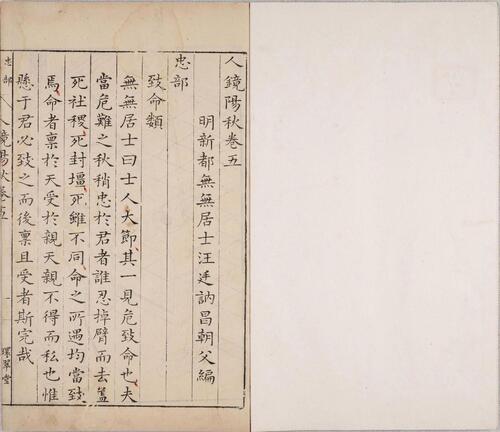 人鏡陽秋卷五
明新都無無居士汪廷訥昌朝父編
忠部
致命類
無無居士曰士人大節其一見危致命也夫
當危難之秋稍忠於君者誰忍掉臂而去蓋
死社稷死封壃死雖不同命之所遇均當致
焉命者稟於天受於親天親不得而私也惟
懸于君必致之而後稟且受者斯完哉
忠部
人鏡陽秋卷五
一
環翠堂